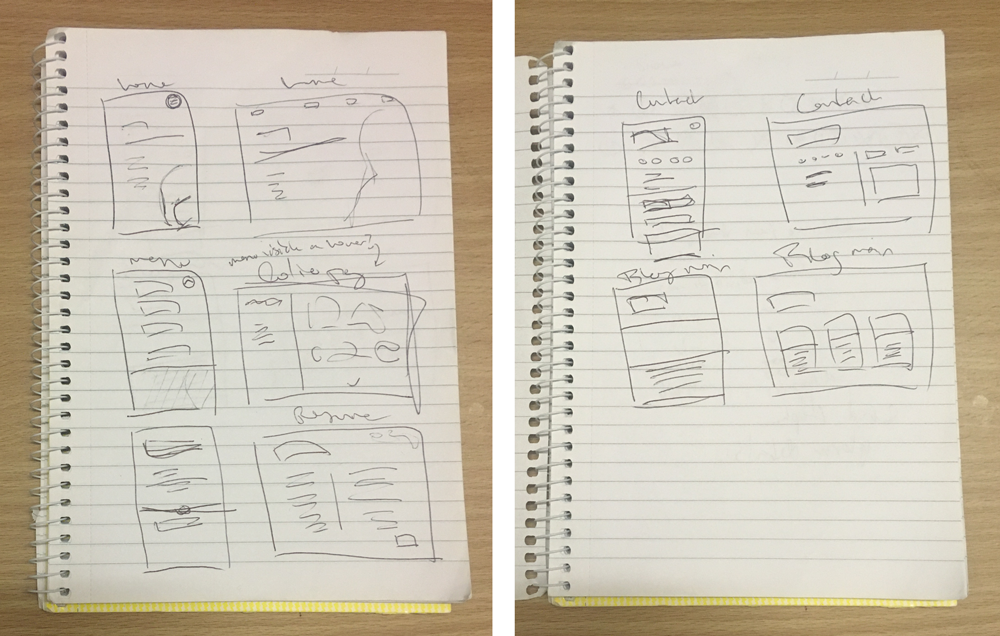 home
home
menu
menu visible on hover?
Resume
Contact
Contact
Blog main
Blog main